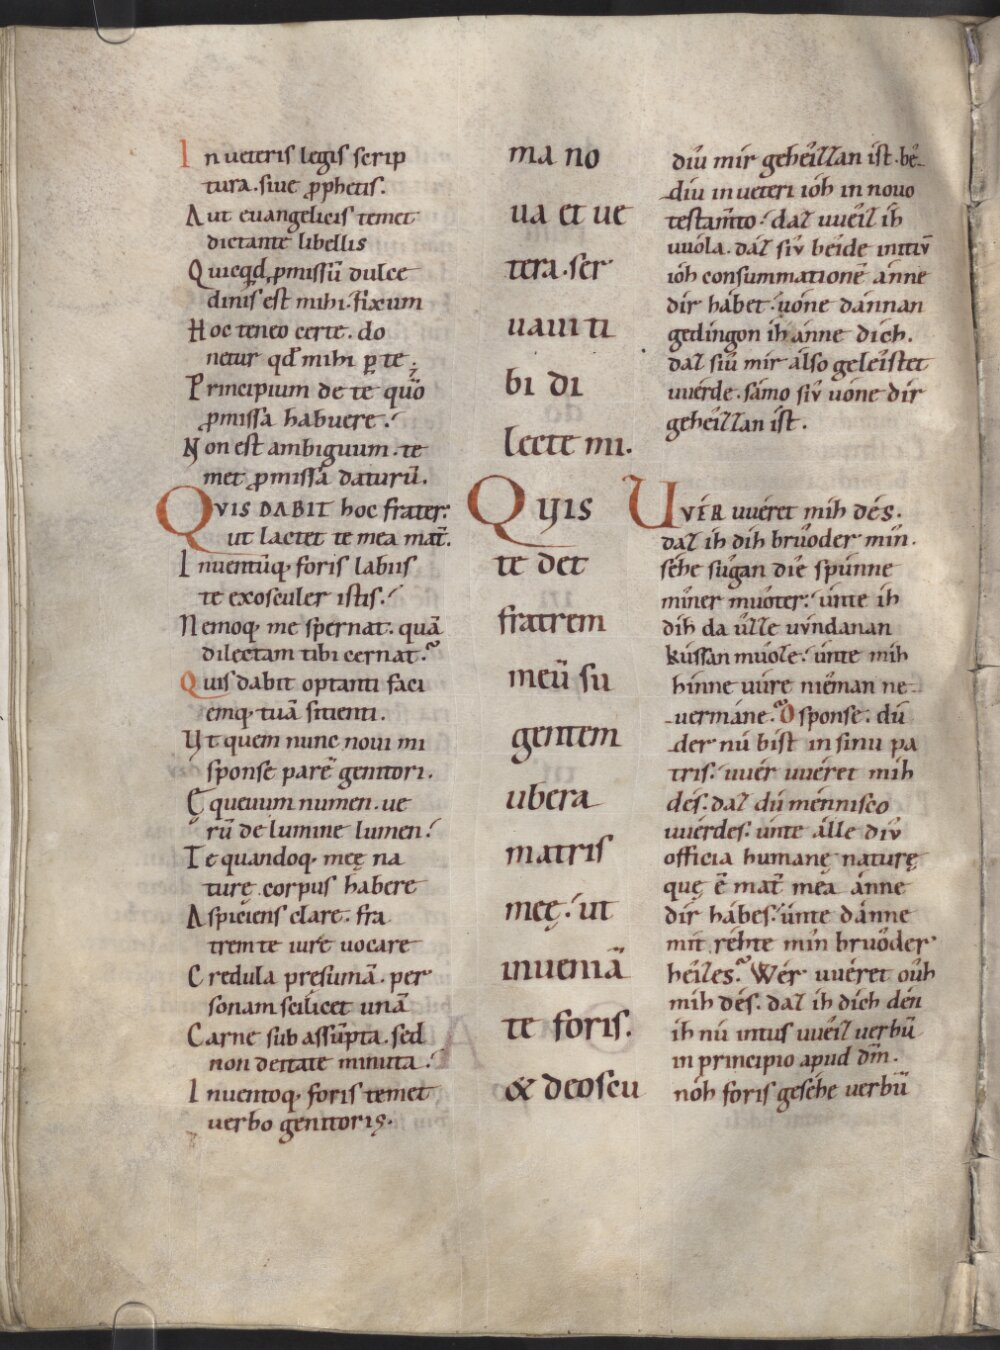 In ueteris legis scrip
tura. siue ꝓphetis.
Aut euangelicis temet
dictante libellis
Quicq̄d ꝓmissū dulce
dinis est mihi. fixum
Hoc teneo certe. do
netur qđ mihi ꝑ te;
Principium de te quō
ꝓmissa habuere.
Non est ambiguum. te
met ꝓmissa daturū.
QVIS DABIT hoc frater:
ut lactet te mea mat̄.
Inuentūq; foris labiis
te exosculer istis.
Nemoq; me spernat. quā
dilectam tibi cernat.
Quis dabit optanti faci
emq; tuā sitienti.
Vt quem nunc noui mi
sponse parē genitori.
Ęquęuum numen. ue
rū de lumine lumen.
Te quandoq; meę na
turę corpus habere
Aspiciens clare. fra
trem te iure uocare
Credula presumā. per
sonam scilicet unā
Carne sub assūpta. sed
non deitate minuta.
Inuentoq; foris temet
uerbo genitoris.
ma no
ua et ue
tera. ser
uaui ti
bi di
lecte mi.
Quis
te det
fratrem
meū su
gentem
ubera
matris
meę. ut
inueniā
te foris.
& deoscu
diu mir geheizzan ist. be-
diu in ueteri ióh in nouo
testam̄to. daz uueiz ih
uuóla. dáz siu beide initiū
ióh consummationē ánne
dir hábet. uóne dánnan
gedingon ih ánne dich.
daz siu mir álso geleistet
uuérde. sámo siu uóne dir
geheizzan ist.
UVER uuéret mih dés.
daz ih dih bruoder min.
séhe súgan die spúnne
miner muoter: únte ih
dih da uzze uvndanan
kussan muoze. únte mih
hinne uúre niéman ne-
uermáne. O sponse. dú
der nú bist in sinu pa
tris. uuér uuéret mih
dés. daz dú ménnisco
uuérdes. únte álle diu
officia humanę naturę
quę ē mat̄ mea ánne
dir hábes. únte dánne
mit réhte min bruoder
heizes. Wér uuéret ouh
mih dés. daz ih dich dén
ih nú intus uueiz uerbū
in principio apud dm̄.
nóh foris geséhe uerbū